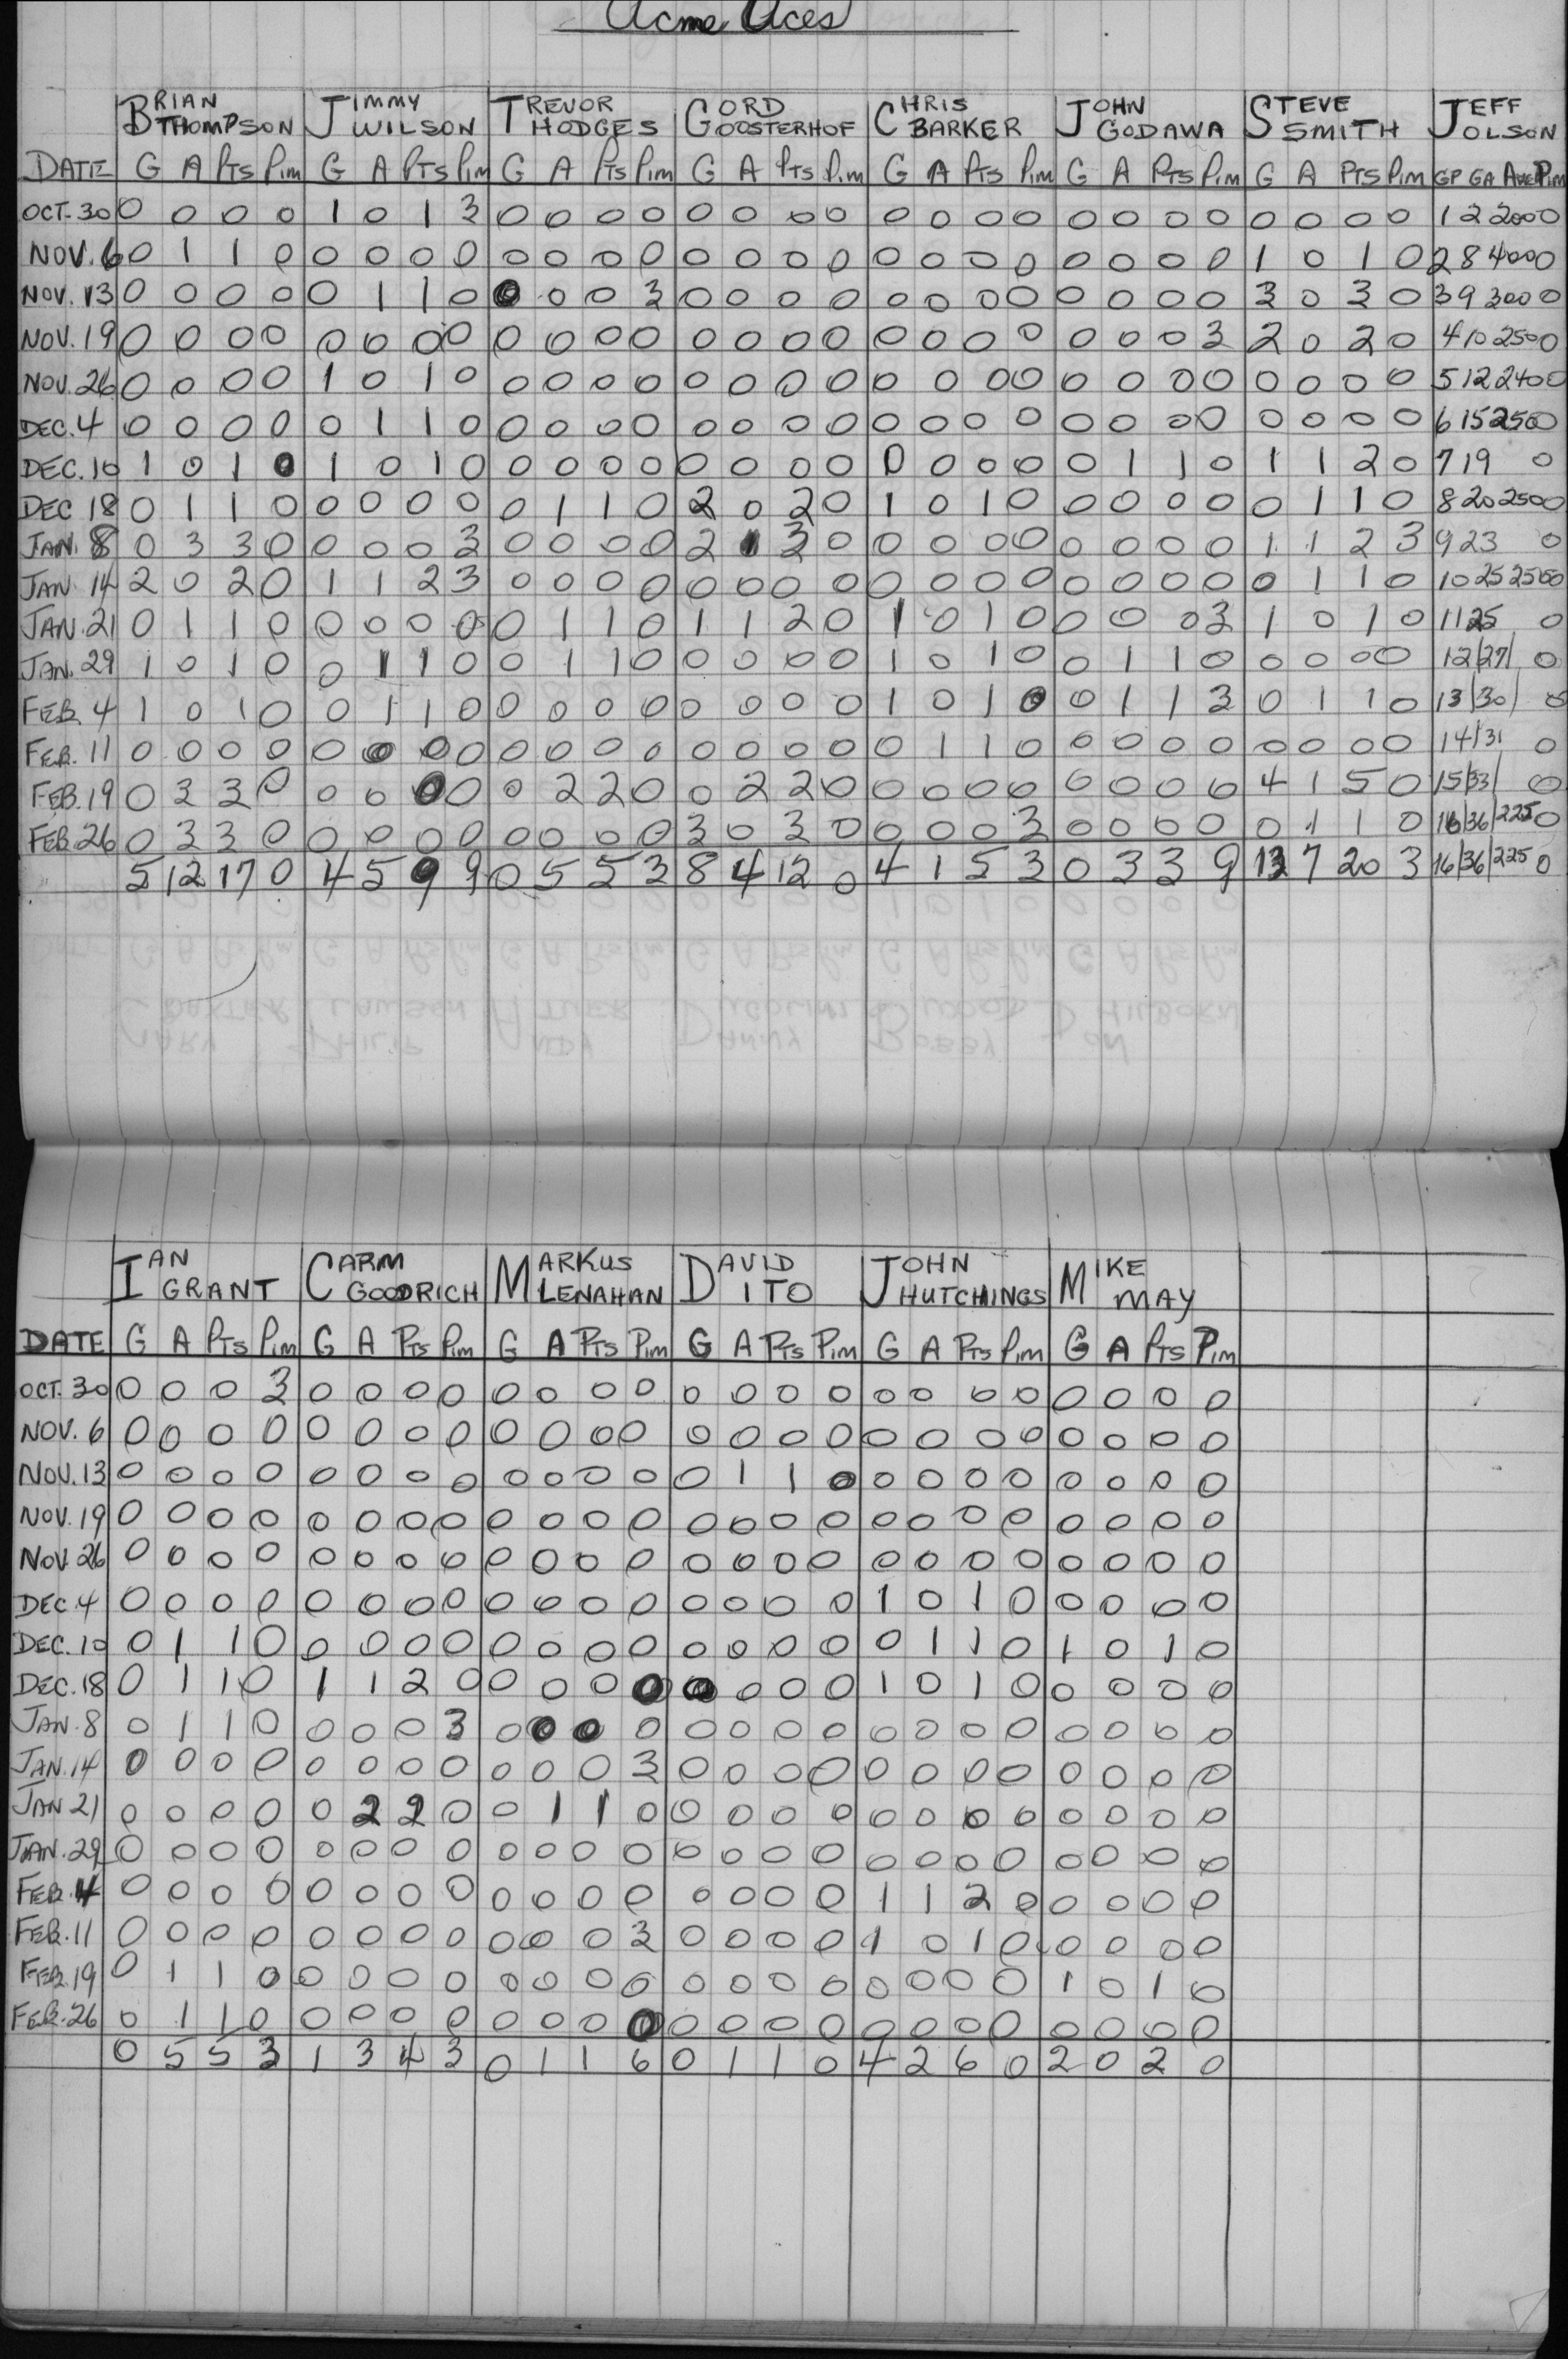 Acme Aces
BRIAN THOMPSON JIMMY WILSON TREVOR HODGES GORD OOSTERHOF CHRIS BARKER JOHN GODAWA STEVE SMITH JEFF OLSON
DATE G A Pts Pim G A Pts Pim G A Pts Pim G A Pts Pim G A Pts Pim G A Pts Pim G A Pts Pim GP GA Ave Pim
OCT. 30 0 0 0 0 1 0 1 3 0 0 0 0 0 0 0 0 0 0 0 0 0 0 0 0 0 0 0 0 1 2 2000
NOV. 6 0 1 1 0 0 0 0 0 0 0 0 0 0 0 0 0 0 0 0 0 0 0 0 0 1 0 1 0 2 8 4000
NOV. 13 0 0 0 0 0 1 1 0 0 0 0 3 0 0 0 0 0 0 0 0 0 0 0 0 3 0 3 0 3 9 3000
NOV. 19 0 0 0 0 0 0 0 0 0 0 0 0 0 0 0 0 0 0 0 0 0 0 0 3 2 0 2 0 4 10 250 0
NOV. 26 0 0 0 0 1 0 1 0 0 0 0 0 0 0 0 0 0 0 0 0 0 0 0 0 0 0 0 0 5 12 240 0
DEC. 4 0 0 0 0 0 1 1 0 0 0 0 0 0 0 0 0 0 0 0 0 0 0 0 0 0 0 0 0 6 15 250 0
DEC. 10 1 0 1 0 1 0 1 0 0 0 0 0 0 0 0 0 0 0 0 0 0 1 1 0 1 1 2 0 7 19 0
DEC 18 0 1 1 0 0 0 0 0 0 1 1 0 2 0 2 0 1 0 1 0 0 0 0 0 0 1 1 0 8 20 250 0
JAN. 8 0 3 3 0 0 0 0 3 0 0 0 0 2 1 3 0 0 0 0 0 0 0 0 0 1 1 2 3 9 23 0
JAN. 14 2 0 2 0 1 1 2 3 0 0 0 0 0 0 0 0 0 0 0 0 0 0 0 0 0 1 1 0 10 25 250 0
JAN. 21 0 1 1 0 0 0 0 0 0 1 1 0 1 1 2 0 1 0 1 0 0 0 0 3 1 0 1 0 11 25 0
JAN. 29 1 0 1 0 0 1 1 0 0 1 1 0 0 0 0 0 1 0 1 0 0 1 1 0 0 0 0 0 12/27/ 0
FEB. 4 1 0 1 0 0 1 1 0 0 0 0 0 0 0 0 0 1 0 1 0 0 1 1 3 0 1 1 0 13/30/ 0
FEB. 11 0 0 0 0 0 0 0 0 0 0 0 0 0 0 0 0 0 1 1 0 0 0 0 0 0 0 0 0 14/31 0
FEB. 19 0 3 3 0 0 0 0 0 0 2 2 0 0 2 2 0 0 0 0 0 0 0 0 0 4 1 5 0 15/33/ 0
FEB. 26 0 3 3 0 0 0 0 0 0 0 0 0 3 0 3 0 0 0 0 3 0 0 0 0 0 1 1 0 16/36/225 0
5 12 17 0 4 5 9 9 0 5 5 3 8 4 12 0 4 1 5 3 0 3 3 9 13 7 20 3 16/36/225 0
IAN GRANT CARM GOODRICH MARKUS LENAHAN DAVID ITO JOHN HUTCHINGS MIKE MAY
DATE G A Pts Pim G A Pts Pim G A Pts Pim G A Pts Pim G A Pts Pim G A Pts Pim
OCT. 30 0 0 0 3 0 0 0 0 0 0 0 0 0 0 0 0 0 0 0 0 0 0 0 0
NOV. 6 0 0 0 0 0 0 0 0 0 0 0 0 0 0 0 0 0 0 0 0 0 0 0 0
NOV. 13 0 0 0 0 0 0 0 0 0 0 0 0 0 1 1 0 0 0 0 0 0 0 0 0
NOV. 19 0 0 0 0 0 0 0 0 0 0 0 0 0 0 0 0 0 0 0 0 0 0 0 0
NOV. 26 0 0 0 0 0 0 0 0 0 0 0 0 0 0 0 0 0 0 0 0 0 0 0 0
DEC. 4 0 0 0 0 0 0 0 0 0 0 0 0 0 0 0 0 1 0 1 0 0 0 0 0
DEC. 10 0 1 1 0 0 0 0 0 0 0 0 0 0 0 0 0 0 1 1 0 1 0 1 0
DEC. 18 0 1 1 0 1 1 2 0 0 0 0 0 0 0 0 0 1 0 1 0 0 0 0 0
JAN. 8 0 1 1 0 0 0 0 3 0 0 0 0 0 0 0 0 0 0 0 0 0 0 0 0
JAN. 14 0 0 0 0 0 0 0 0 0 0 0 3 0 0 0 0 0 0 0 0 0 0 0 0
JAN 21 0 0 0 0 0 2 2 0 0 1 1 0 0 0 0 0 0 0 0 0 0 0 0 0
JAN. 29 0 0 0 0 0 0 0 0 0 0 0 0 0 0 0 0 0 0 0 0 0 0 0 0
FEB. 4 0 0 0 0 0 0 0 0 0 0 0 0 0 0 0 0 1 1 2 0 0 0 0 0
FEB. 11 0 0 0 0 0 0 0 0 0 0 0 3 0 0 0 0 1 0 1 0 0 0 0 0
FEB. 19 0 1 1 0 0 0 0 0 0 0 0 0 0 0 0 0 0 0 0 0 1 0 1 0
FEB. 26 0 1 1 0 0 0 0 0 0 0 0 0 0 0 0 0 0 0 0 0 0 0 0 0
0 5 5 3 1 3 4 3 0 1 1 6 0 1 1 0 4 2 6 0 2 0 2 0